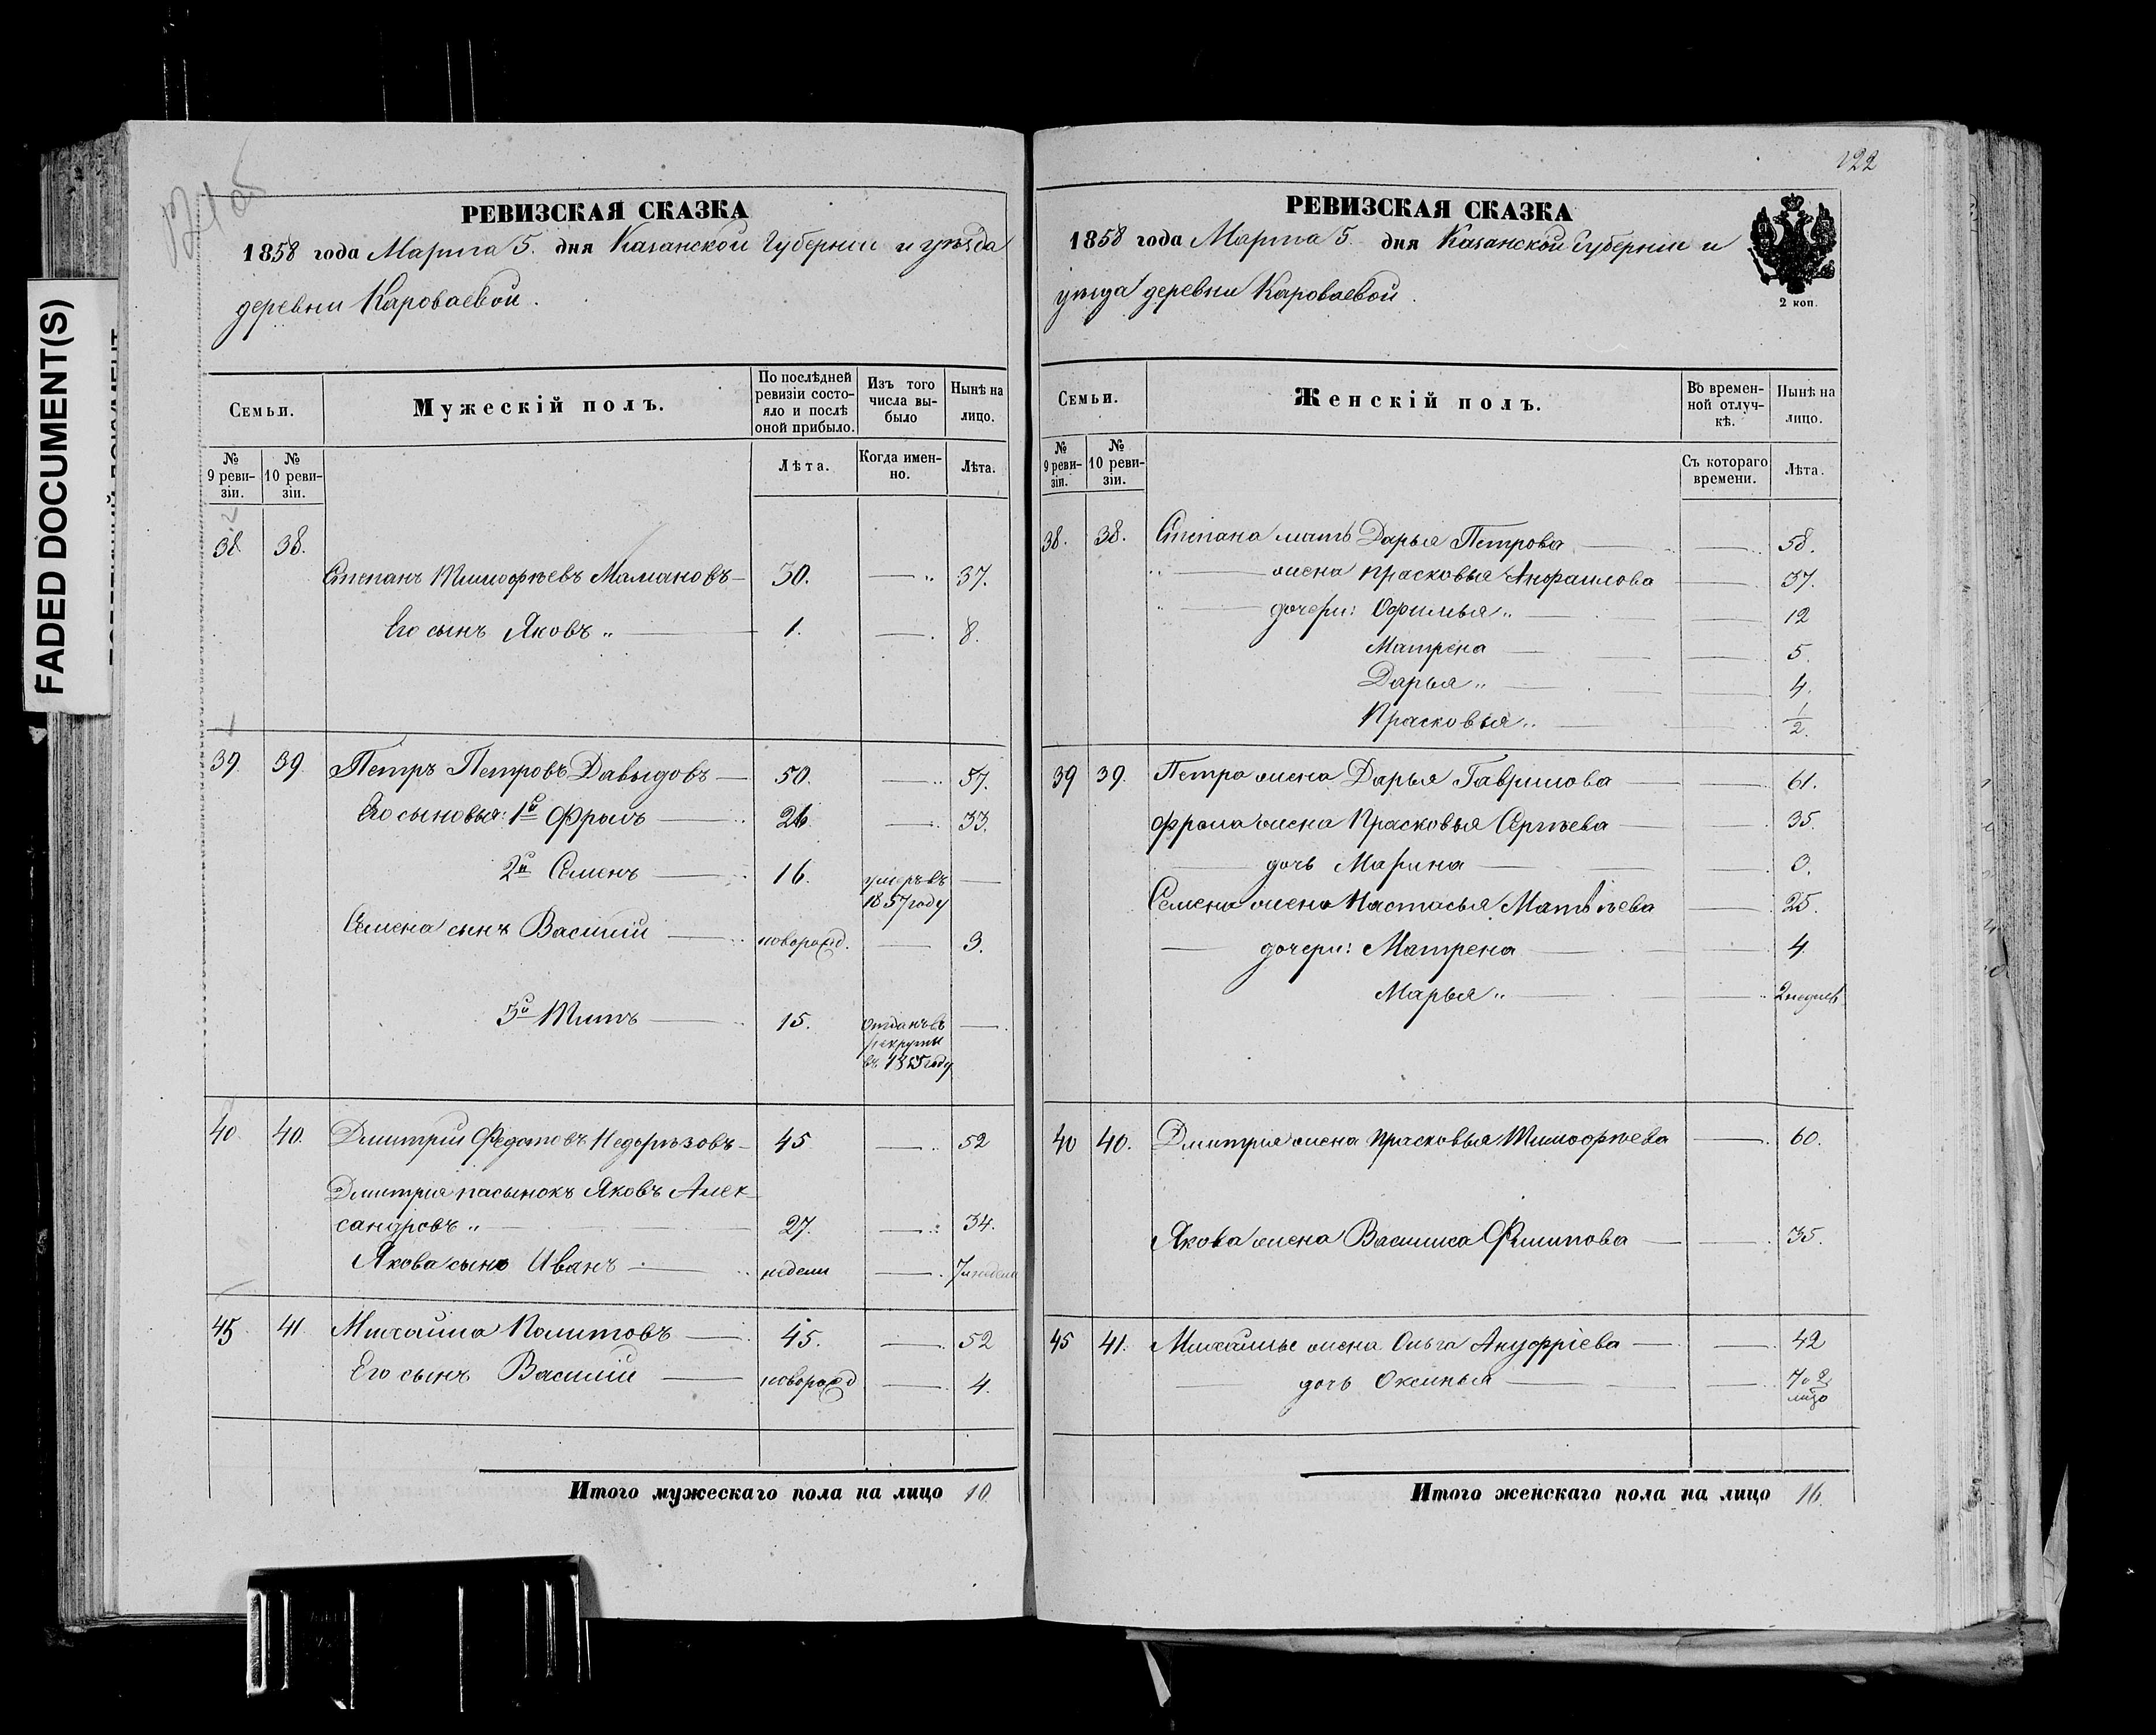 FADED DOCUMENT(S)
121 об
РЕВИЗСКАЯ СКАЗКА
1858 года Марта 5. дня Казанской Губерніи и уѣзда
деревни Короваевой.
Семьи.
Мужескій полъ.
По послѣдней ревизіи состояло и послѣ оной прибыло.
Изъ того числа выбыло
Нынѣ на лицо.
№ 9 ревизіи.
№ 10 ревизіи.
Лѣта.
Когда именно.
Лѣта.
38. 38.
Степанъ Тимофѣевъ Мамановъ — 30. — „ 37.
Его сынъ Яковъ „ — 1. — . 8.
39. 39. Петръ Петровъ Давыдовъ — 50. — 57.
Его сыновья: 1й Фролъ — 26. — 33.
2й Семенъ — 16. умеръ въ 1857 году —
Семена сынъ Василій — новорожд. — 3.
3й Титъ — 15. отданъ въ рекруты въ 1855 году —
40. 40. Дмитрій Федотовъ Недорѣзовъ — 45 — 52
Дмитрія пасынокъ Яковъ Алек-
сандровъ „ — 27. — 34.
Якова сынъ Иванъ — недели — 7 недели
45. 41. Михайла Политовъ — 45. — 52
Его сынъ Василій — новорожд — 4.
Итого мужескаго пола на лицо 10.
122
РЕВИЗСКАЯ СКАЗКА
1858 года Марта 5. дня Казанской Губерніи и
уѣзда деревни Короваевой.
2 коп.
Семьи.
Женскій полъ.
Во временной отлучкѣ.
Нынѣ на лицо.
№ 9 ревизіи.
№ 10 ревизіи.
Съ котораго времени.
Лѣта.
38. 38. Степана мать Дарья Петрова — 58.
„ — жена Прасковья Анфаилова — 37.
„ — дочери: Офимья „ — 12
Матрена — 5.
Дарья „ — 4.
Прасковья „ — 1/2.
39 39. Петра жена Дарья Гаврилова — 61.
Фрола жена Прасковья Сергѣева — 35.
— дочь Марина — 3.
Семена жена Настасья Матвѣева — 25.
— дочери: Матрена — 4.
Марья „ — 2 недель
40 40. Дмитрія жена Прасковья Тимофѣева — 60.
Якова жена Василиса Филипова — 35.
45 41. Михайлы жена Ольга Ануфріева — 42
— дочь Оксинья —
Итого женскаго пола на лицо 16.